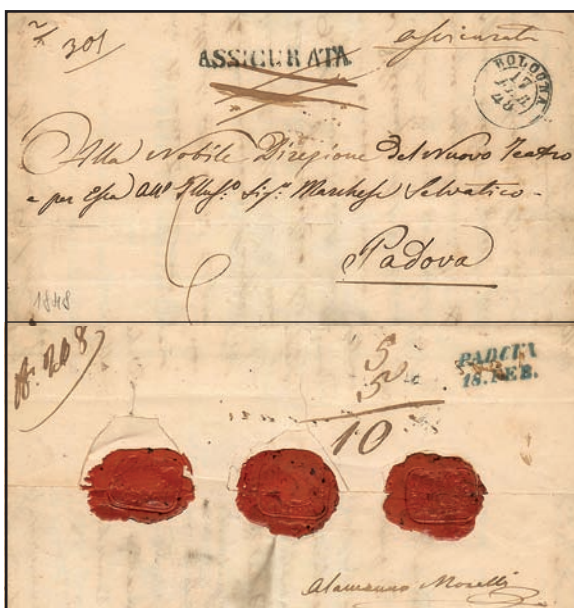 N 301
ASSICURATA
assicurata
BOLOGNA
17
FEB
48
Alla Nobile Direzione del Nuovo Teatro
e per Essa All' Illus:o Sig:r Marchese Selvatico -
Padova
1848
5
5
10
PADOVA
18. FEB.
Alamanno Morelli